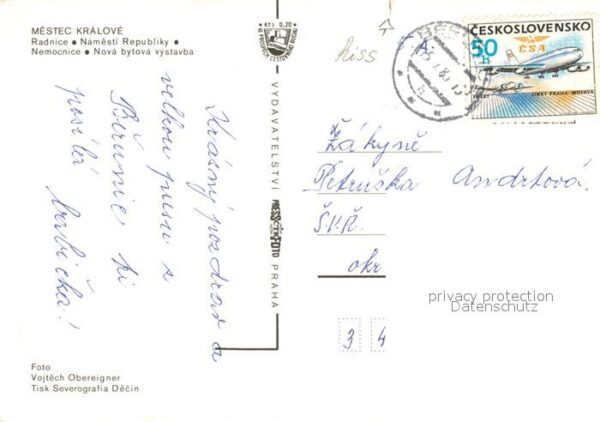 MĚSTEC KRÁLOVÉ
Radnice • Náměstí Republiky •
Nemocnice • Nová bytová výstavba
Kčs 0,20
Krásný pozdrav a
velkou pusu z
ti
posílá babička!
Foto
Vojtěch Obereigner
Tisk Severografia Děčín
VYDAVATELSTVÍ PRESSFOTO PRAHA
Riss
ČESKOSLOVENSKO
50 h
ČSA
LINKY PRAHA-MOSKVA
Žákyně
Petruška Andrtová
Š.V.Ř.
okr
privacy protection
Datenschutz
3 4